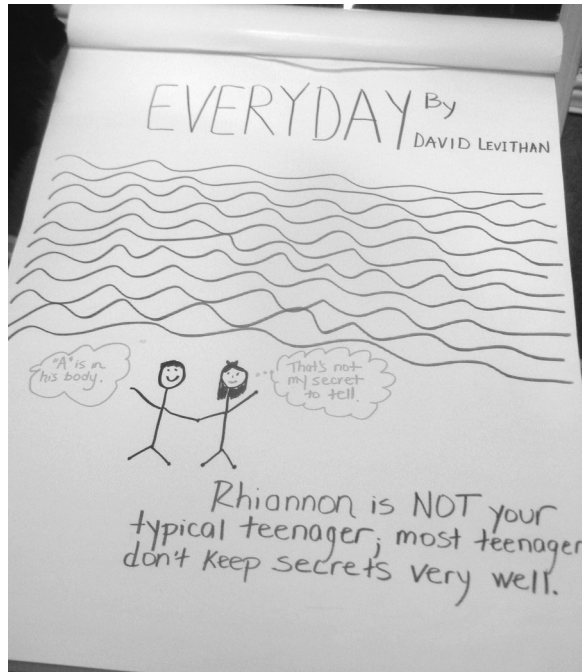 EVERYDAY By
DAVID LEVITHAN
"A" is in
his body.
That's not
my secret
to tell.
Rhiannon is NOT your
typical teenager; most teenager
don't keep secrets very well.